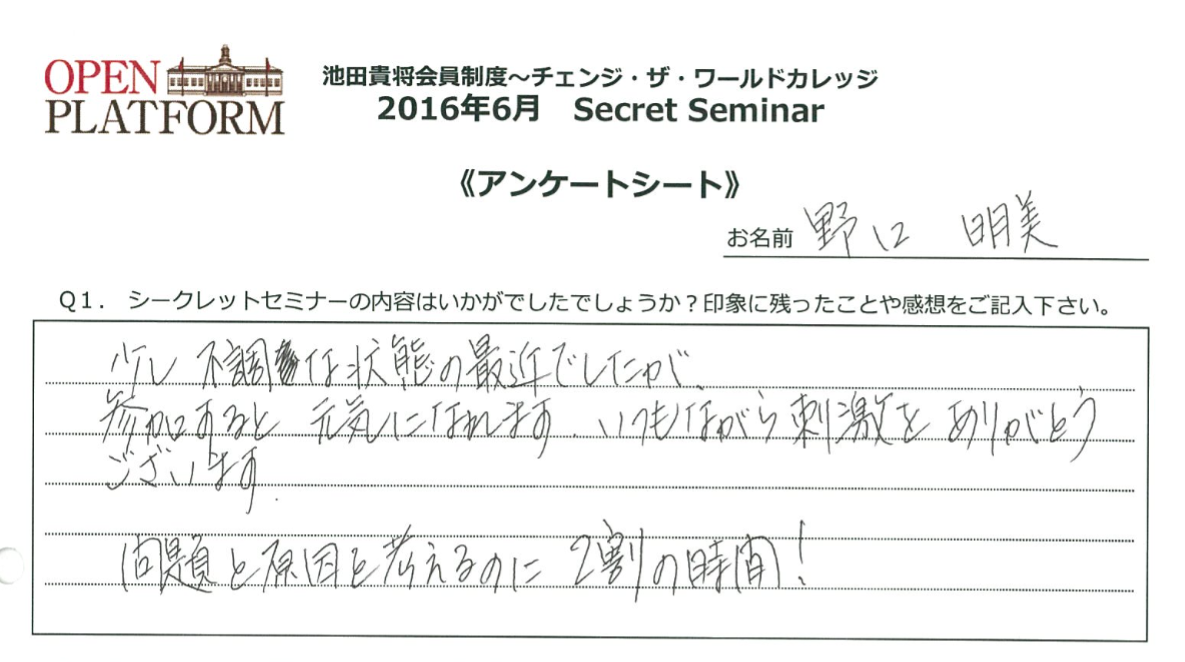 OPEN
PLATFORM
池田貴将会員制度～チェンジ・ザ・ワールドカレッジ
2016年6月 Secret Seminar
《アンケートシート》
お名前 野口 明美
Q1. シークレットセミナーの内容はいかがでしたでしょうか？印象に残ったことや感想をご記入下さい。
少し 不調な状態の最近でしたが、
参加すると 元気になれます. いつもながら刺激を ありがとう
ございます.
問題と原因を考えるのに 2割の時間!